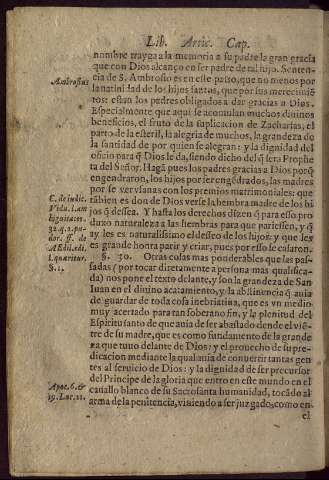 Lib. Artic. Cap.
nombre trayga a la memoria a su padre la gran gracia
que con Dios alcanço en ser padre de tal hijo. Senten-
Ambrosius
cia de S. Ambrosio es en este passo, que no menos por
la natiuidad de los hijos santos, que por sus merecimiẽ
tos: estan los padres obligados a dar gracias a Dios.
Especialmente que aqui se acomulan muchos diuinos
beneficios, el fruto de la suplicacion de Zacharias, el
parto de la esteril, la alegria de muchos, la grandeza de
la santidad de por quien se alegran: y la dignidad del
oficio para q̃ Dios le da, siendo dicho del q̃ sera Prophe
ta del Señor. Hagã pues los padres gracias a Dios porq̃
engendraron, los hijos por ser engẽdrados, las madres
por se ver vfanas con los premios matrimoniales: que
tãbien es don de Dios verse la hembra madre de los hi
C. de indic.
Vidu. l. am
biguitates.
32. q. 2. pu-
dor. ff. de
AEdil. edi.
l. quæritur.
§. 1.
jos q̃ dessea. Y hasta los derechos dizen q̃ para esso pro
duxo naturaleza a las hembras para que pariessen, y q̃
ay les es naturalissimo el desseo de los hijos: y que les
es grande honra parir y criar, pues por esso se casaron.
§. 30. Otras cosas mas ponderables que las pas-
sadas (por tocar diretamente a persona mas qualifica-
da) nos pone el texto delante, y son la grandeza de San
Iuan en el diuino acatamiento, y la abstinencia q̃ auia
de guardar de toda cosa inebriatiua, que es vn medio
muy acertado para tan soberano fin, y la plenitud del
Espiritu santo de que auia de ser abastado dende el viẽ-
tre de su madre, que es como fundamento de la grande
za que tuuo delante de Dios: y el prouecho de su pre-
dicacion mediante la qual auia de conuertir tantas gen
tes al seruicio de Dios: y la dignidad de ser precursor
del Principe de la gloria que entro en este mundo en el
Apoc. 6. &
19. Luc. 11.
cauallo blanco de su Sacrosanta humanidad, tocãdo al
arma de la penitencia, viniendo a ser juzgado, como en
el